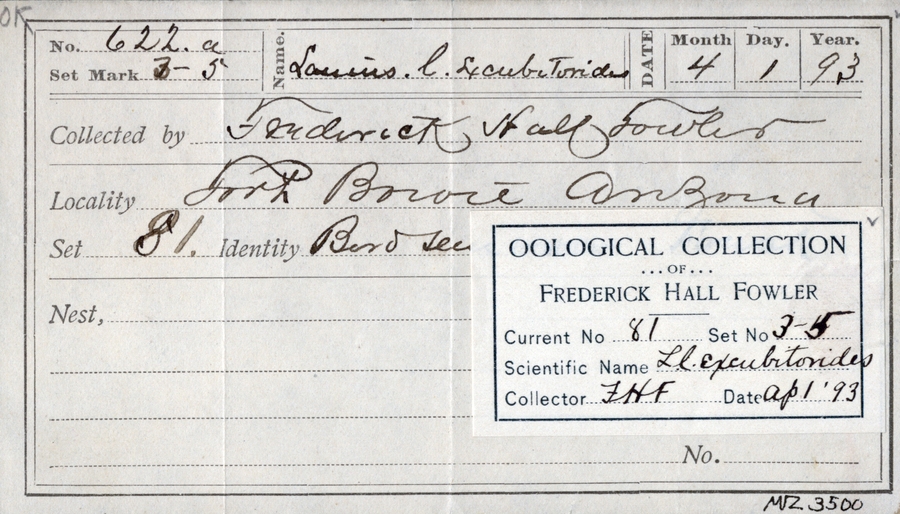 OK
No. 622.a Name. Lanius. l. Excubitorides DATE Month Day. Year.
Set Mark 3-5 4 1 93
Collected by Frederick Hall Fowler
Locality Fort Bowie Arizona
Set 81. Identity Bird see
Nest,
OOLOGICAL COLLECTION
...OF...
FREDERICK HALL FOWLER
Current No 81 Set No 3-5
Scientific Name L l. excubitorides
Collector FHF Date ap 1 '93
No.
MVZ 3500